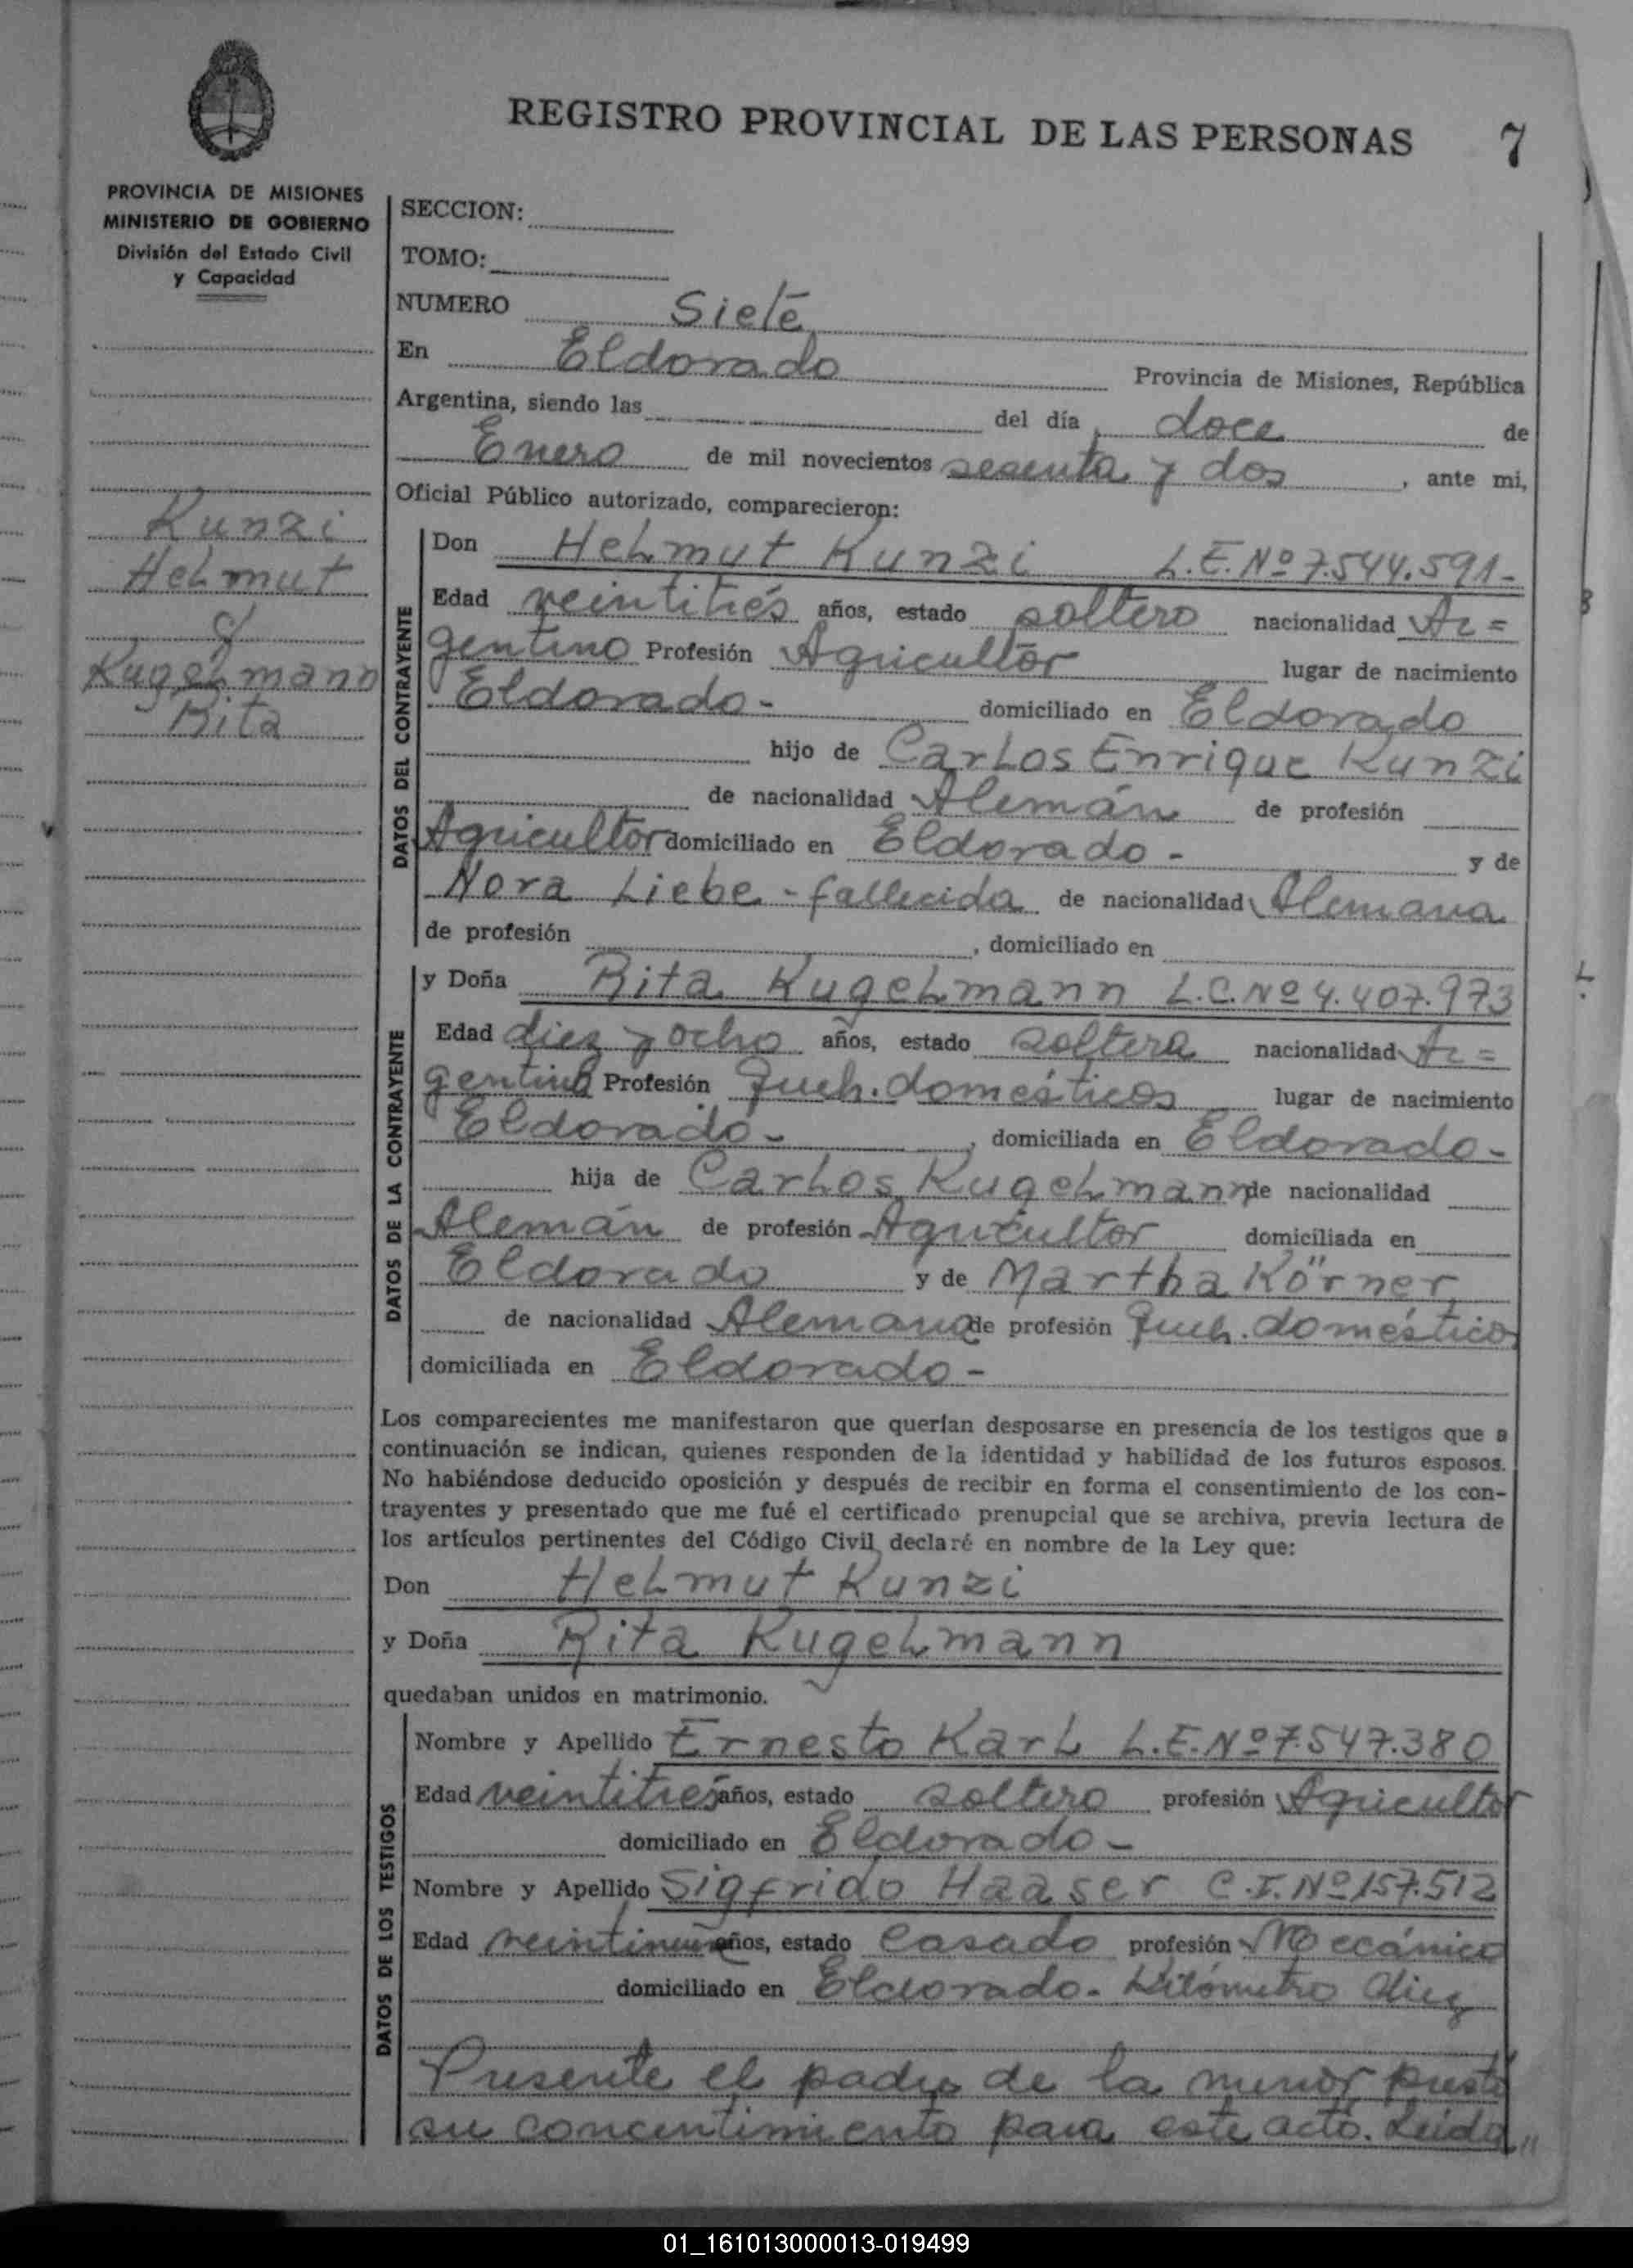 REGISTRO PROVINCIAL DE LAS PERSONAS 7
PROVINCIA DE MISIONES
MINISTERIO DE GOBIERNO
División del Estado Civil
y Capacidad
Kunzi
Helmut
y
Kugelmann
Rita
SECCION:
TOMO:
NUMERO Siete
En Eldorado Provincia de Misiones, República
Argentina, siendo las del día doce de
Enero de mil novecientos sesenta y dos, ante mi,
Oficial Público autorizado, comparecieron:
DATOS DEL CONTRAYENTE
Don Helmut Kunzi L.E. Nº 7.544.591-
Edad veintitrés años, estado soltero nacionalidad Ar=
gentino Profesión Agricultor lugar de nacimiento
Eldorado- domiciliado en Eldorado
hijo de Carlos Enrique Kunzi
de nacionalidad Alemán de profesión
Agricultor domiciliado en Eldorado- y de
Nora Liebe - fallecida de nacionalidad Alemana
de profesión , domiciliado en
DATOS DE LA CONTRAYENTE
y Doña Rita Kugelmann L.C. Nº 4.407.973
Edad diez y ocho años, estado soltera nacionalidad Ar=
gentina Profesión Queh. domésticos lugar de nacimiento
Eldorado- , domiciliada en Eldorado-
hija de Carlos Kugelmann de nacionalidad
Alemán de profesión Agricultor domiciliada en
Eldorado y de Martha Körner
de nacionalidad Alemana de profesión Queh. domésticos
domiciliada en Eldorado-
Los comparecientes me manifestaron que querían desposarse en presencia de los testigos que a
continuación se indican, quienes responden de la identidad y habilidad de los futuros esposos.
No habiéndose deducido oposición y después de recibir en forma el consentimiento de los con-
trayentes y presentado que me fué el certificado prenupcial que se archiva, previa lectura de
los artículos pertinentes del Código Civil, declaré en nombre de la Ley que:
Don Helmut Kunzi
y Doña Rita Kugelmann
quedaban unidos en matrimonio.
DATOS DE LOS TESTIGOS
Nombre y Apellido Ernesto Karl L.E. Nº 7.547.380
Edad veintitrés años, estado soltero profesión Agricultor
domiciliado en Eldorado-
Nombre y Apellido Sigfrido Haaser C.I. Nº 157.512
Edad años, estado Casado profesión Mecánico
domiciliado en Eldorado- Kilómetro diez
Presente el padre de la menor presta
su concentimiento para este acto. Leida "
01_161013000013-019499